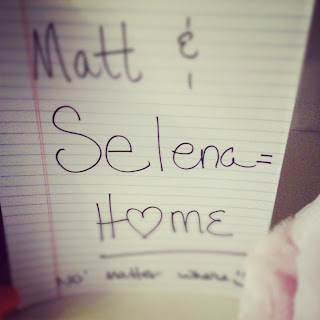 Matt &
Selena=
H♡me
No' matter where :)